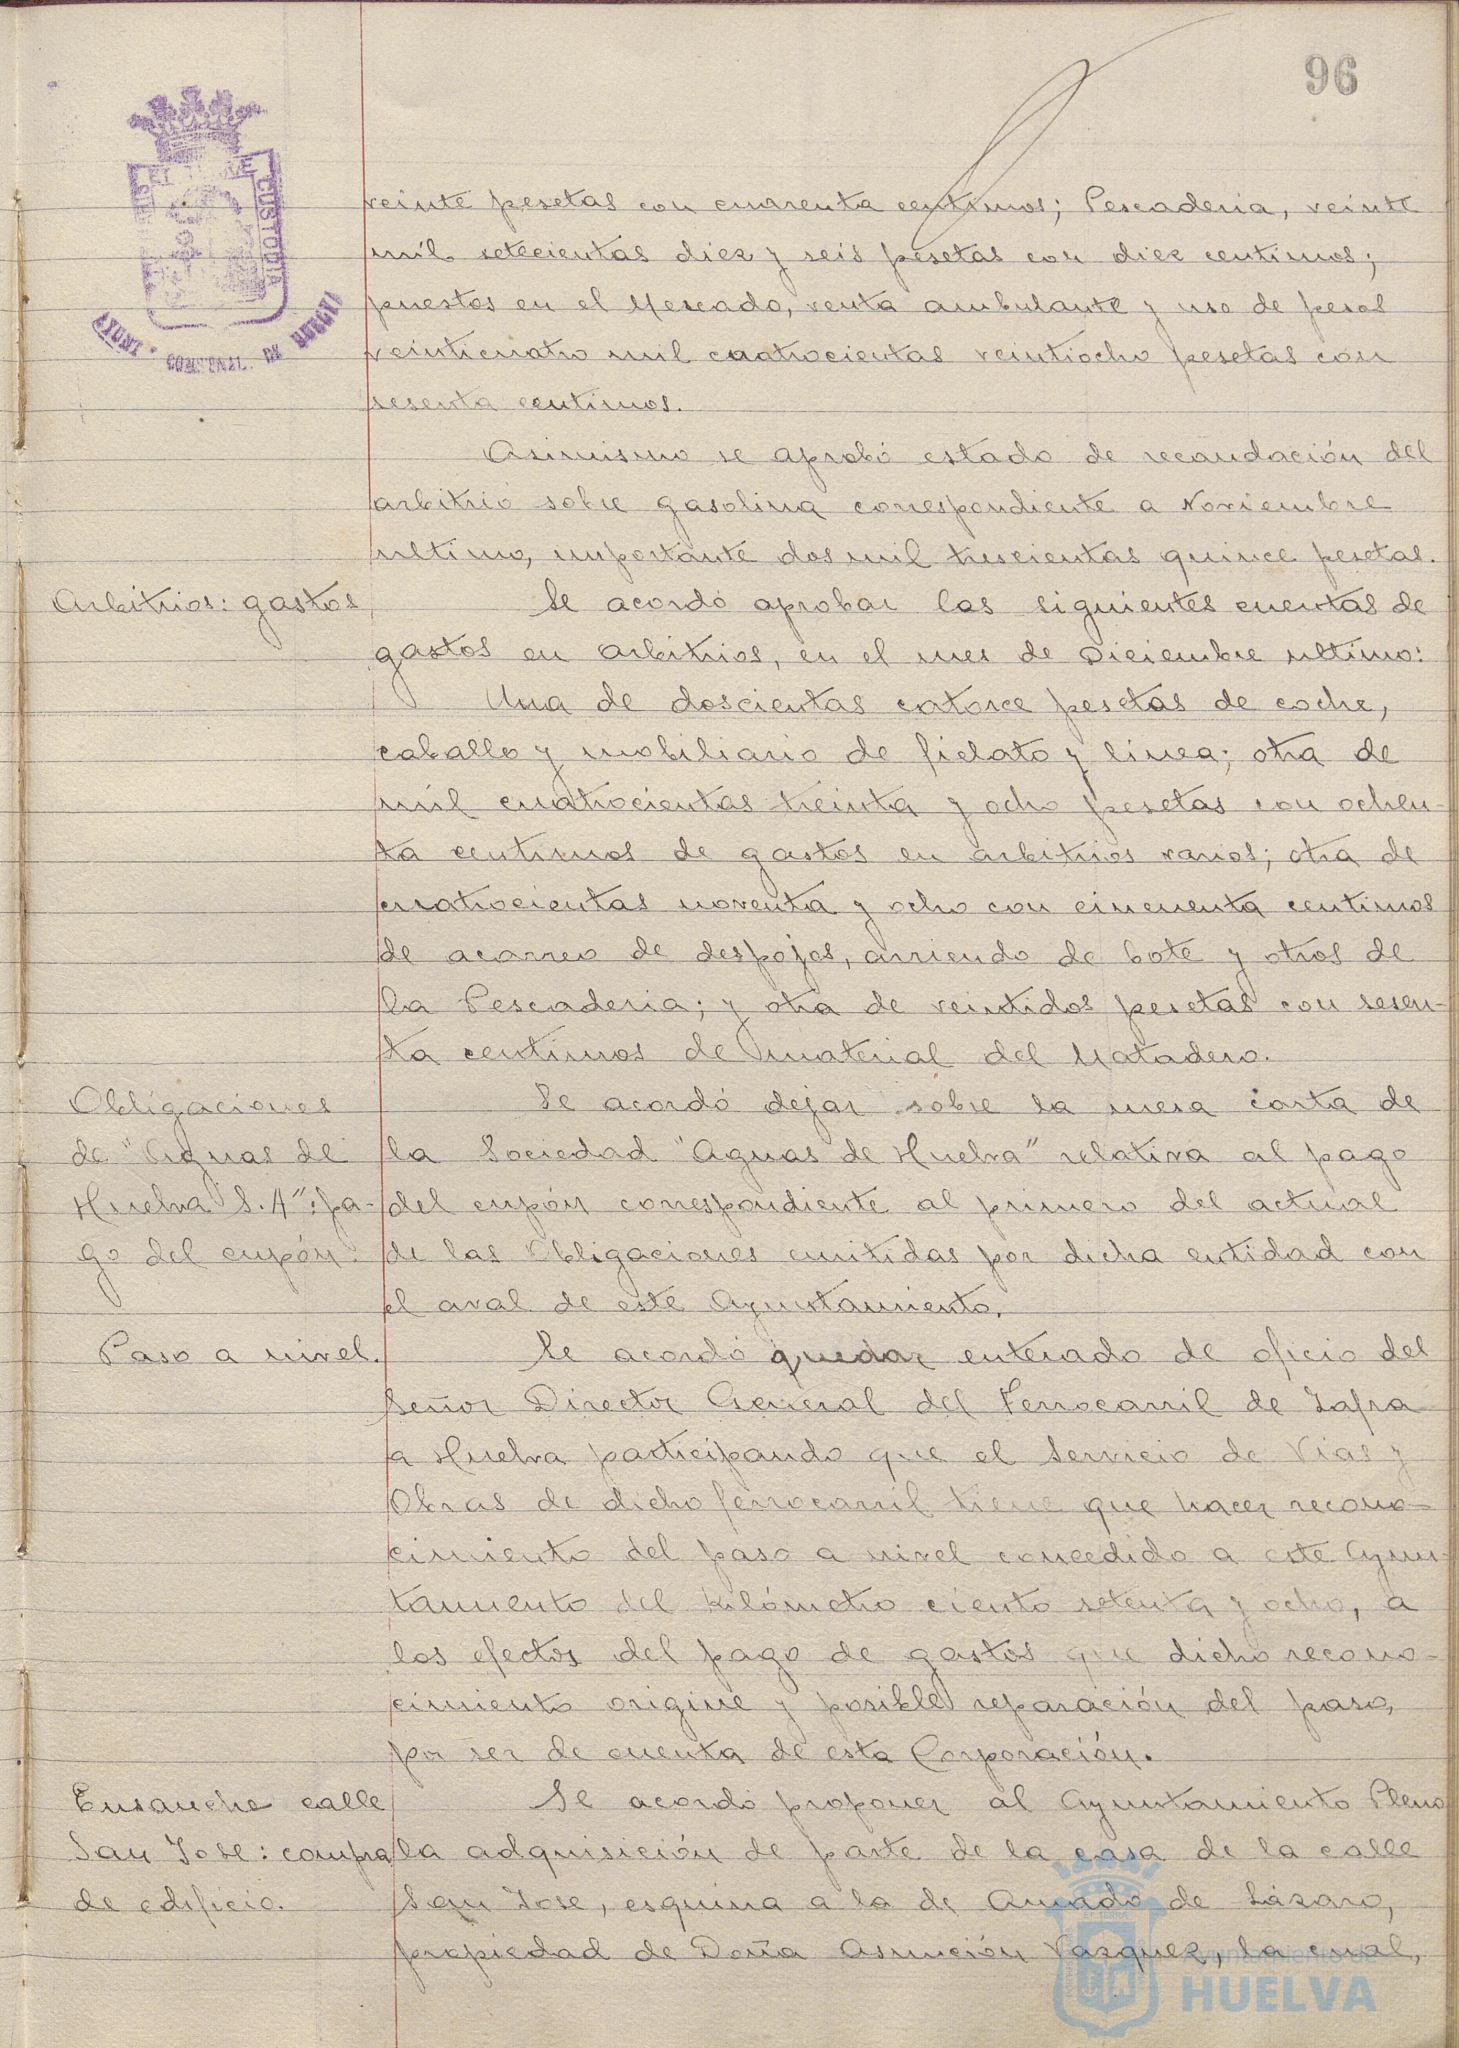 96
veinte pesetas con cuarenta centimos; Pescaderia, veinte
mil setecientas diez y seis pesetas con diez centimos;
puestos en el Mercado, venta ambulante y uso de pesas
veinticuatro mil cuatrocientas veintiocho pesetas con
sesenta centimos.
Asimismo se aprobó estado de recaudación del
arbitrio sobre gasolina correspondiente a Noviembre
ultimo, importante dos mil trescientas quince pesetas.
Arbitrios: gastos
Se acordó aprobar las siguientes cuentas de
gastos en arbitrios, en el mes de Diciembre ultimo:
Una de doscientas catorce pesetas de coche,
caballo y mobiliario de fielato y linea; otra de
mil cuatrocientas treinta y ocho pesetas con ochen-
ta centimos de gastos en arbitrios varios; otra de
cuatrocientas noventa y ocho con cincuenta centimos
de acarreo de despojos, arriendo de bote y otros de
la Pescaderia; y otra de veintidos pesetas con sesen-
ta centimos de material del Matadero.
Obligaciones
de "Aguas de
Huelva S.A": pa-
go del cupón.
Se acordó dejar sobre la mesa carta de
la Sociedad "Aguas de Huelva" relativa al pago
del cupón correspondiente al primero del actual
de las Obligaciones emitidas por dicha entidad con
el aval de este Ayuntamiento.
Paso a nivel.
Se acordó quedar enterado de oficio del
Señor Director General del Ferrocarril de Zafra
a Huelva participando que el Servicio de Vias y
Obras de dicho ferrocarril tiene que hacer recono-
cimiento del paso a nivel concedido a este Ayun-
tamiento del kilómetro ciento setenta y ocho, a
los efectos del pago de gastos que dicho recono-
cimiento origine y posible reparación del paso,
por ser de cuenta de esta Corporación.
Ensanche calle
San Jose: compra
de edificio.
Se acordó proponer al Ayuntamiento Pleno
la adquisición de parte de la casa de la calle
San Jose, esquina a la de Amado de Lázaro,
propiedad de Doña Asunción Vazquez, la cual,
Ayuntamiento de
HUELVA